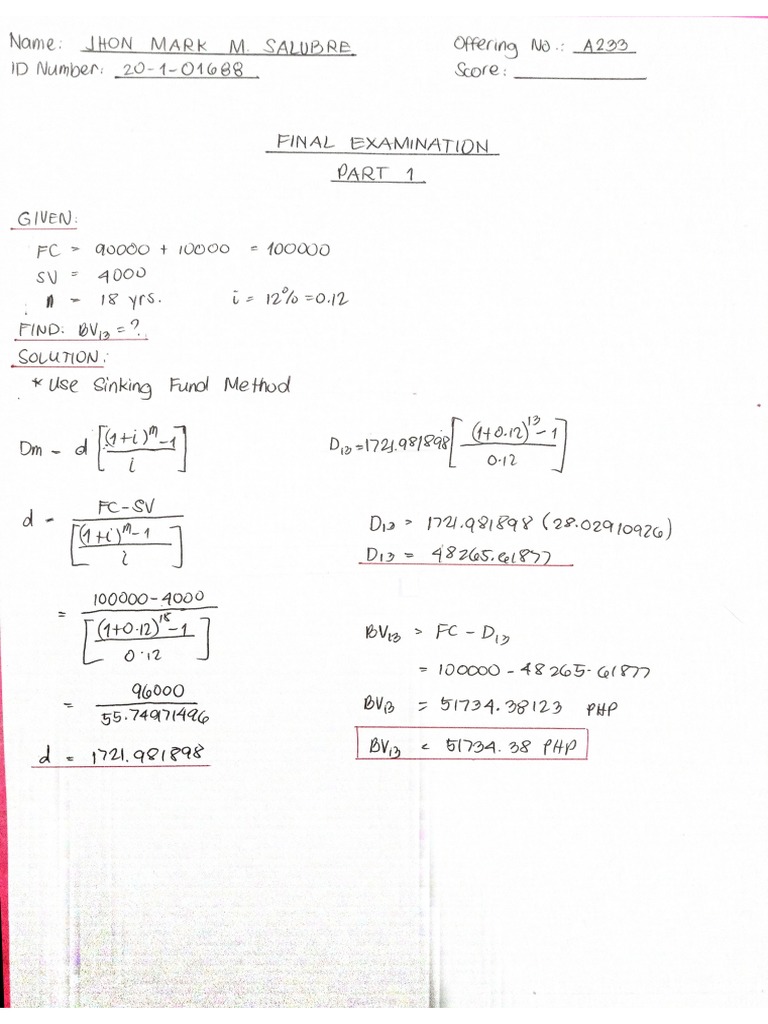 Name: JHON MARK M. SALUBRE
Offering No.: A233
ID Number: 20-1-01688
Score:
FINAL EXAMINATION
PART 1
GIVEN:
FC = 90000 + 10000 = 100000
SV = 4000
n = 18 yrs. i = 12% = 0.12
FIND: BV13 = ?
SOLUTION:
* Use Sinking Fund Method
Dm = d [(1+i)^m - 1 / i]
d = FC-SV / [(1+i)^n - 1 / i]
= 100000-4000 / [(1+0.12)^18 - 1 / 0.12]
= 96000 / 55.74971496
d = 1721.981898
D13 = 1721.981898 [(1+0.12)^13 - 1 / 0.12]
D13 = 1721.981898 (28.02910926)
D13 = 48265.61877
BV13 = FC - D13
= 100000 - 48265.61877
BV13 = 51734.38123 PHP
BV13 = 51734.38 PHP